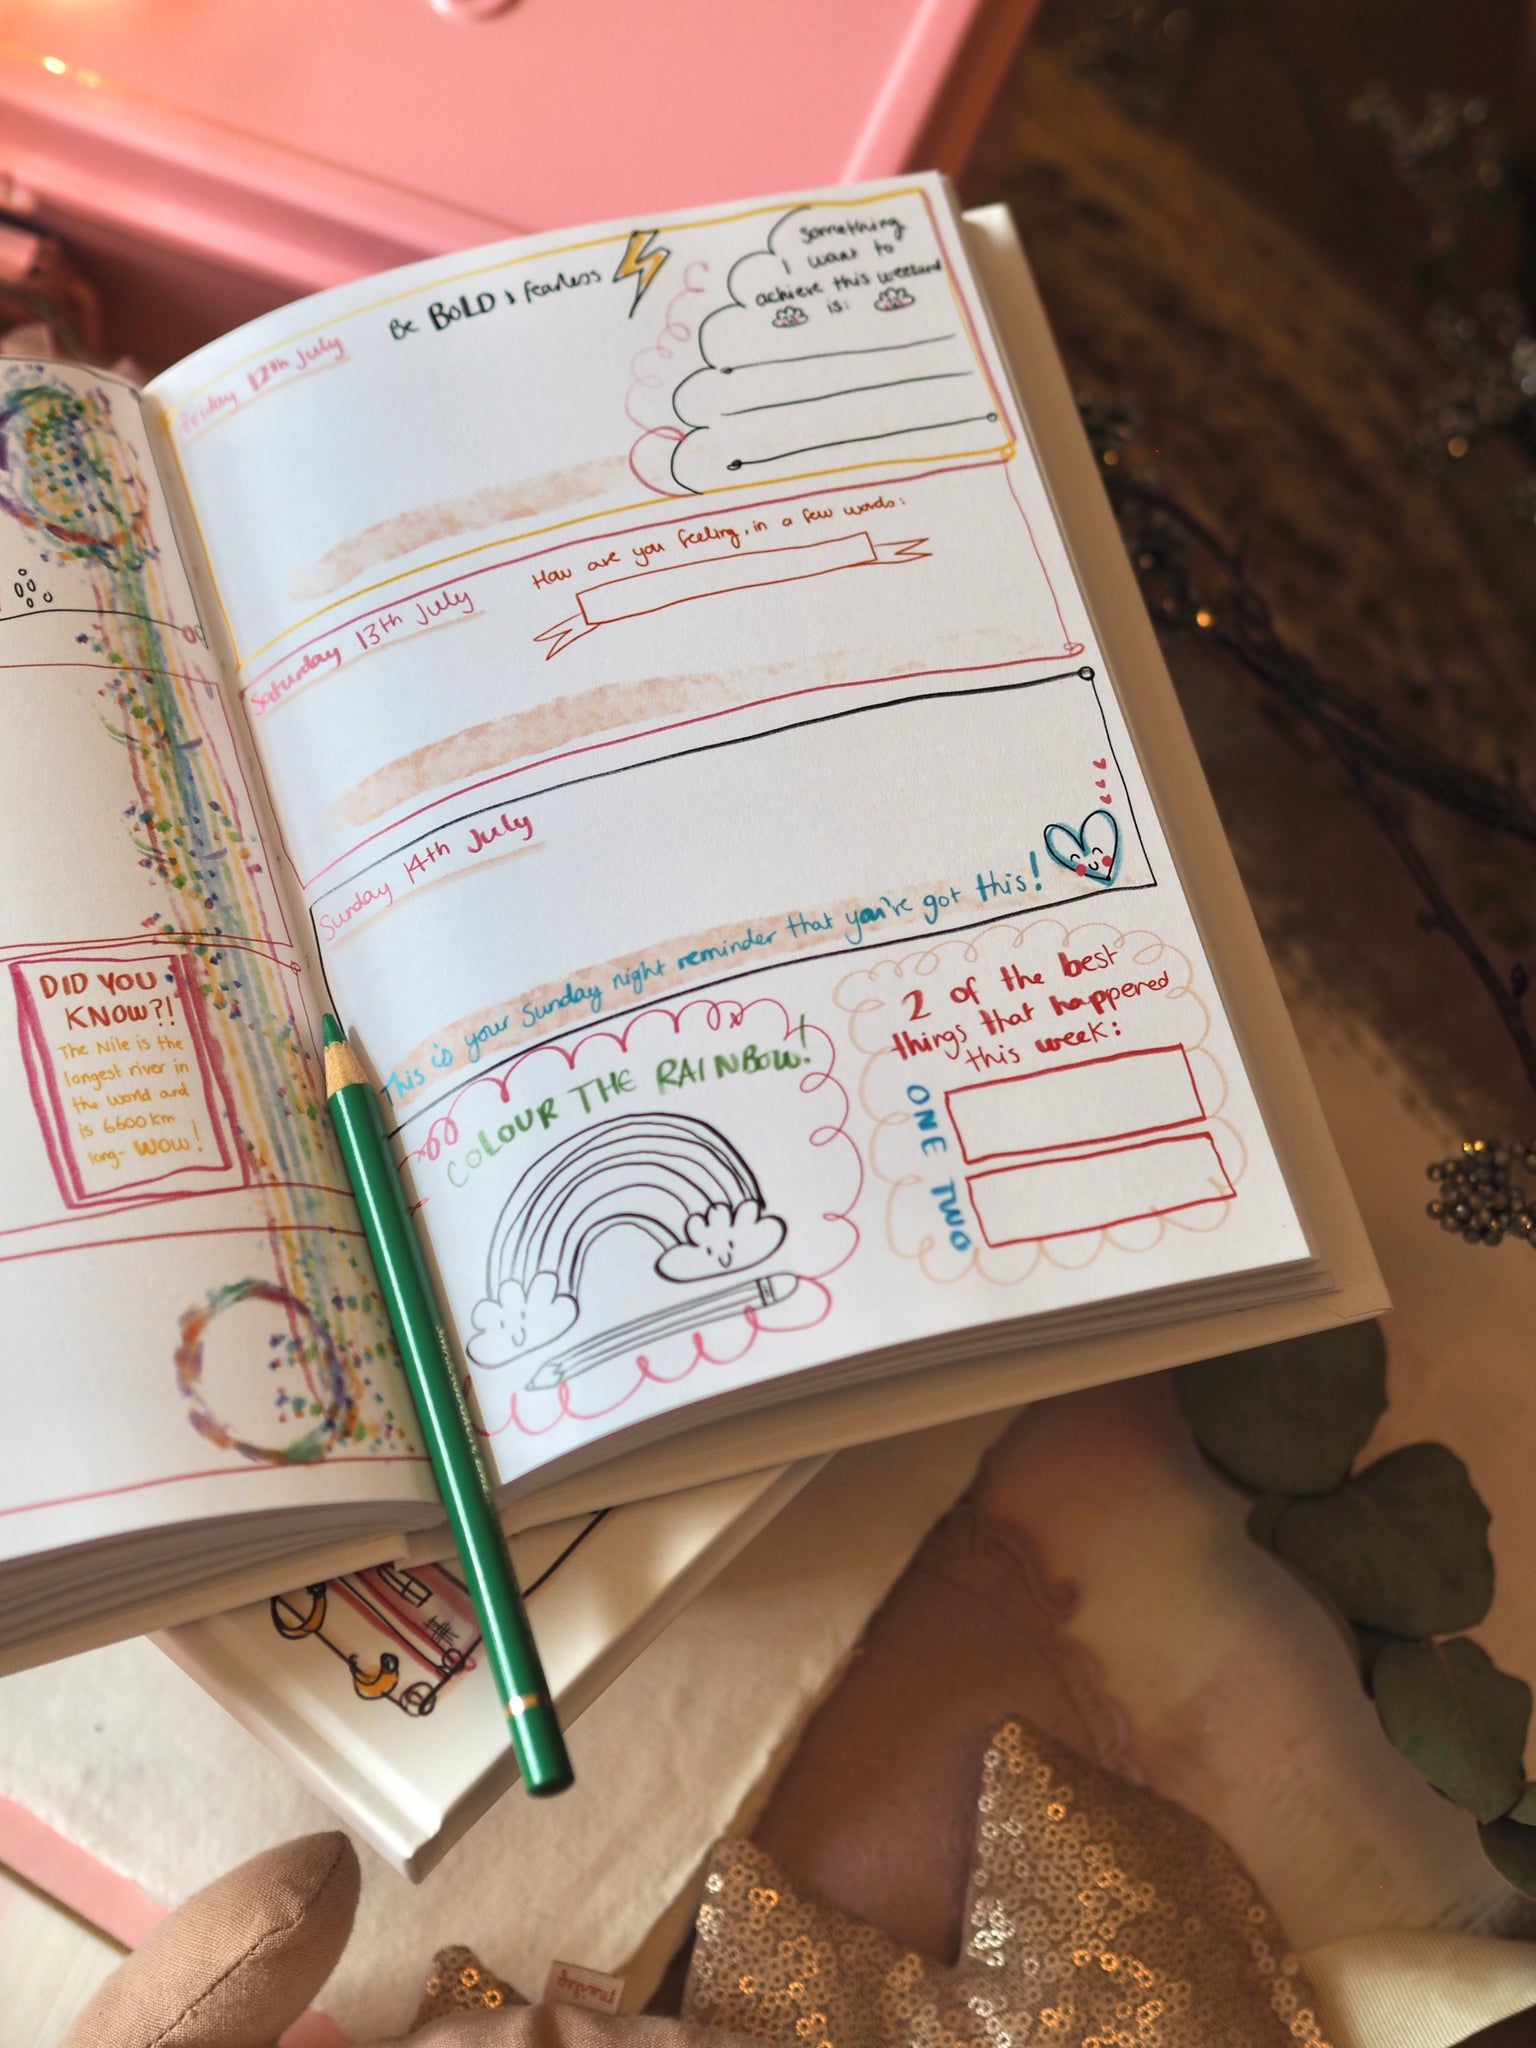 DID YOU
KNOW?!
The Nile is the
longest river in
the world and
is 6600km
long- WOW!
Be BOLD & fearless
Friday 12th July
something
I want to
achieve this weekend
is:
How are you feeling, in a few words:
Saturday 13th July
Sunday 14th July
This is your Sunday night reminder that you've got this!
COLOUR THE RAINBOW!
2 of the best
things that happened
this week:
ONE
TWO